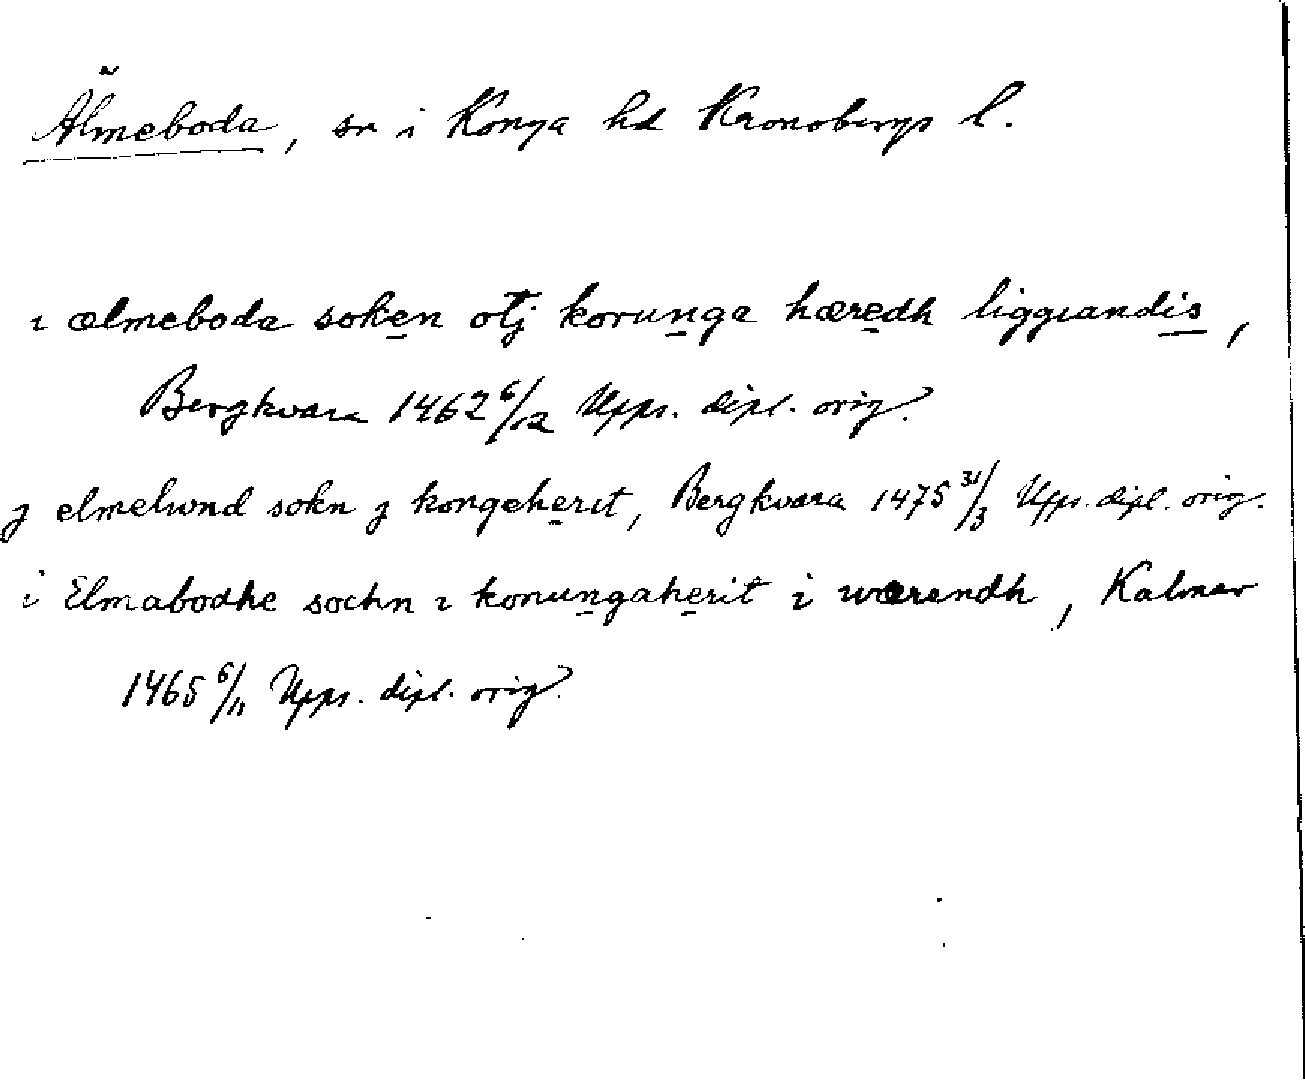 Älmeboda, sn i Konga hd Kronobergs l.
ı ælmeboda soken otj korunga hæredh liggıandis,
Bergkvara 1462 6/12 Upps. dipl. orig.
j elmehwnd sokn j kongeherıt, Bergkvara 1475 31/3 Upps. dipl. orig.
i Elmabodhe sochn ı konungaherit i wærendh, Kalmar
1465 6/11 Upps. dipl. orig.